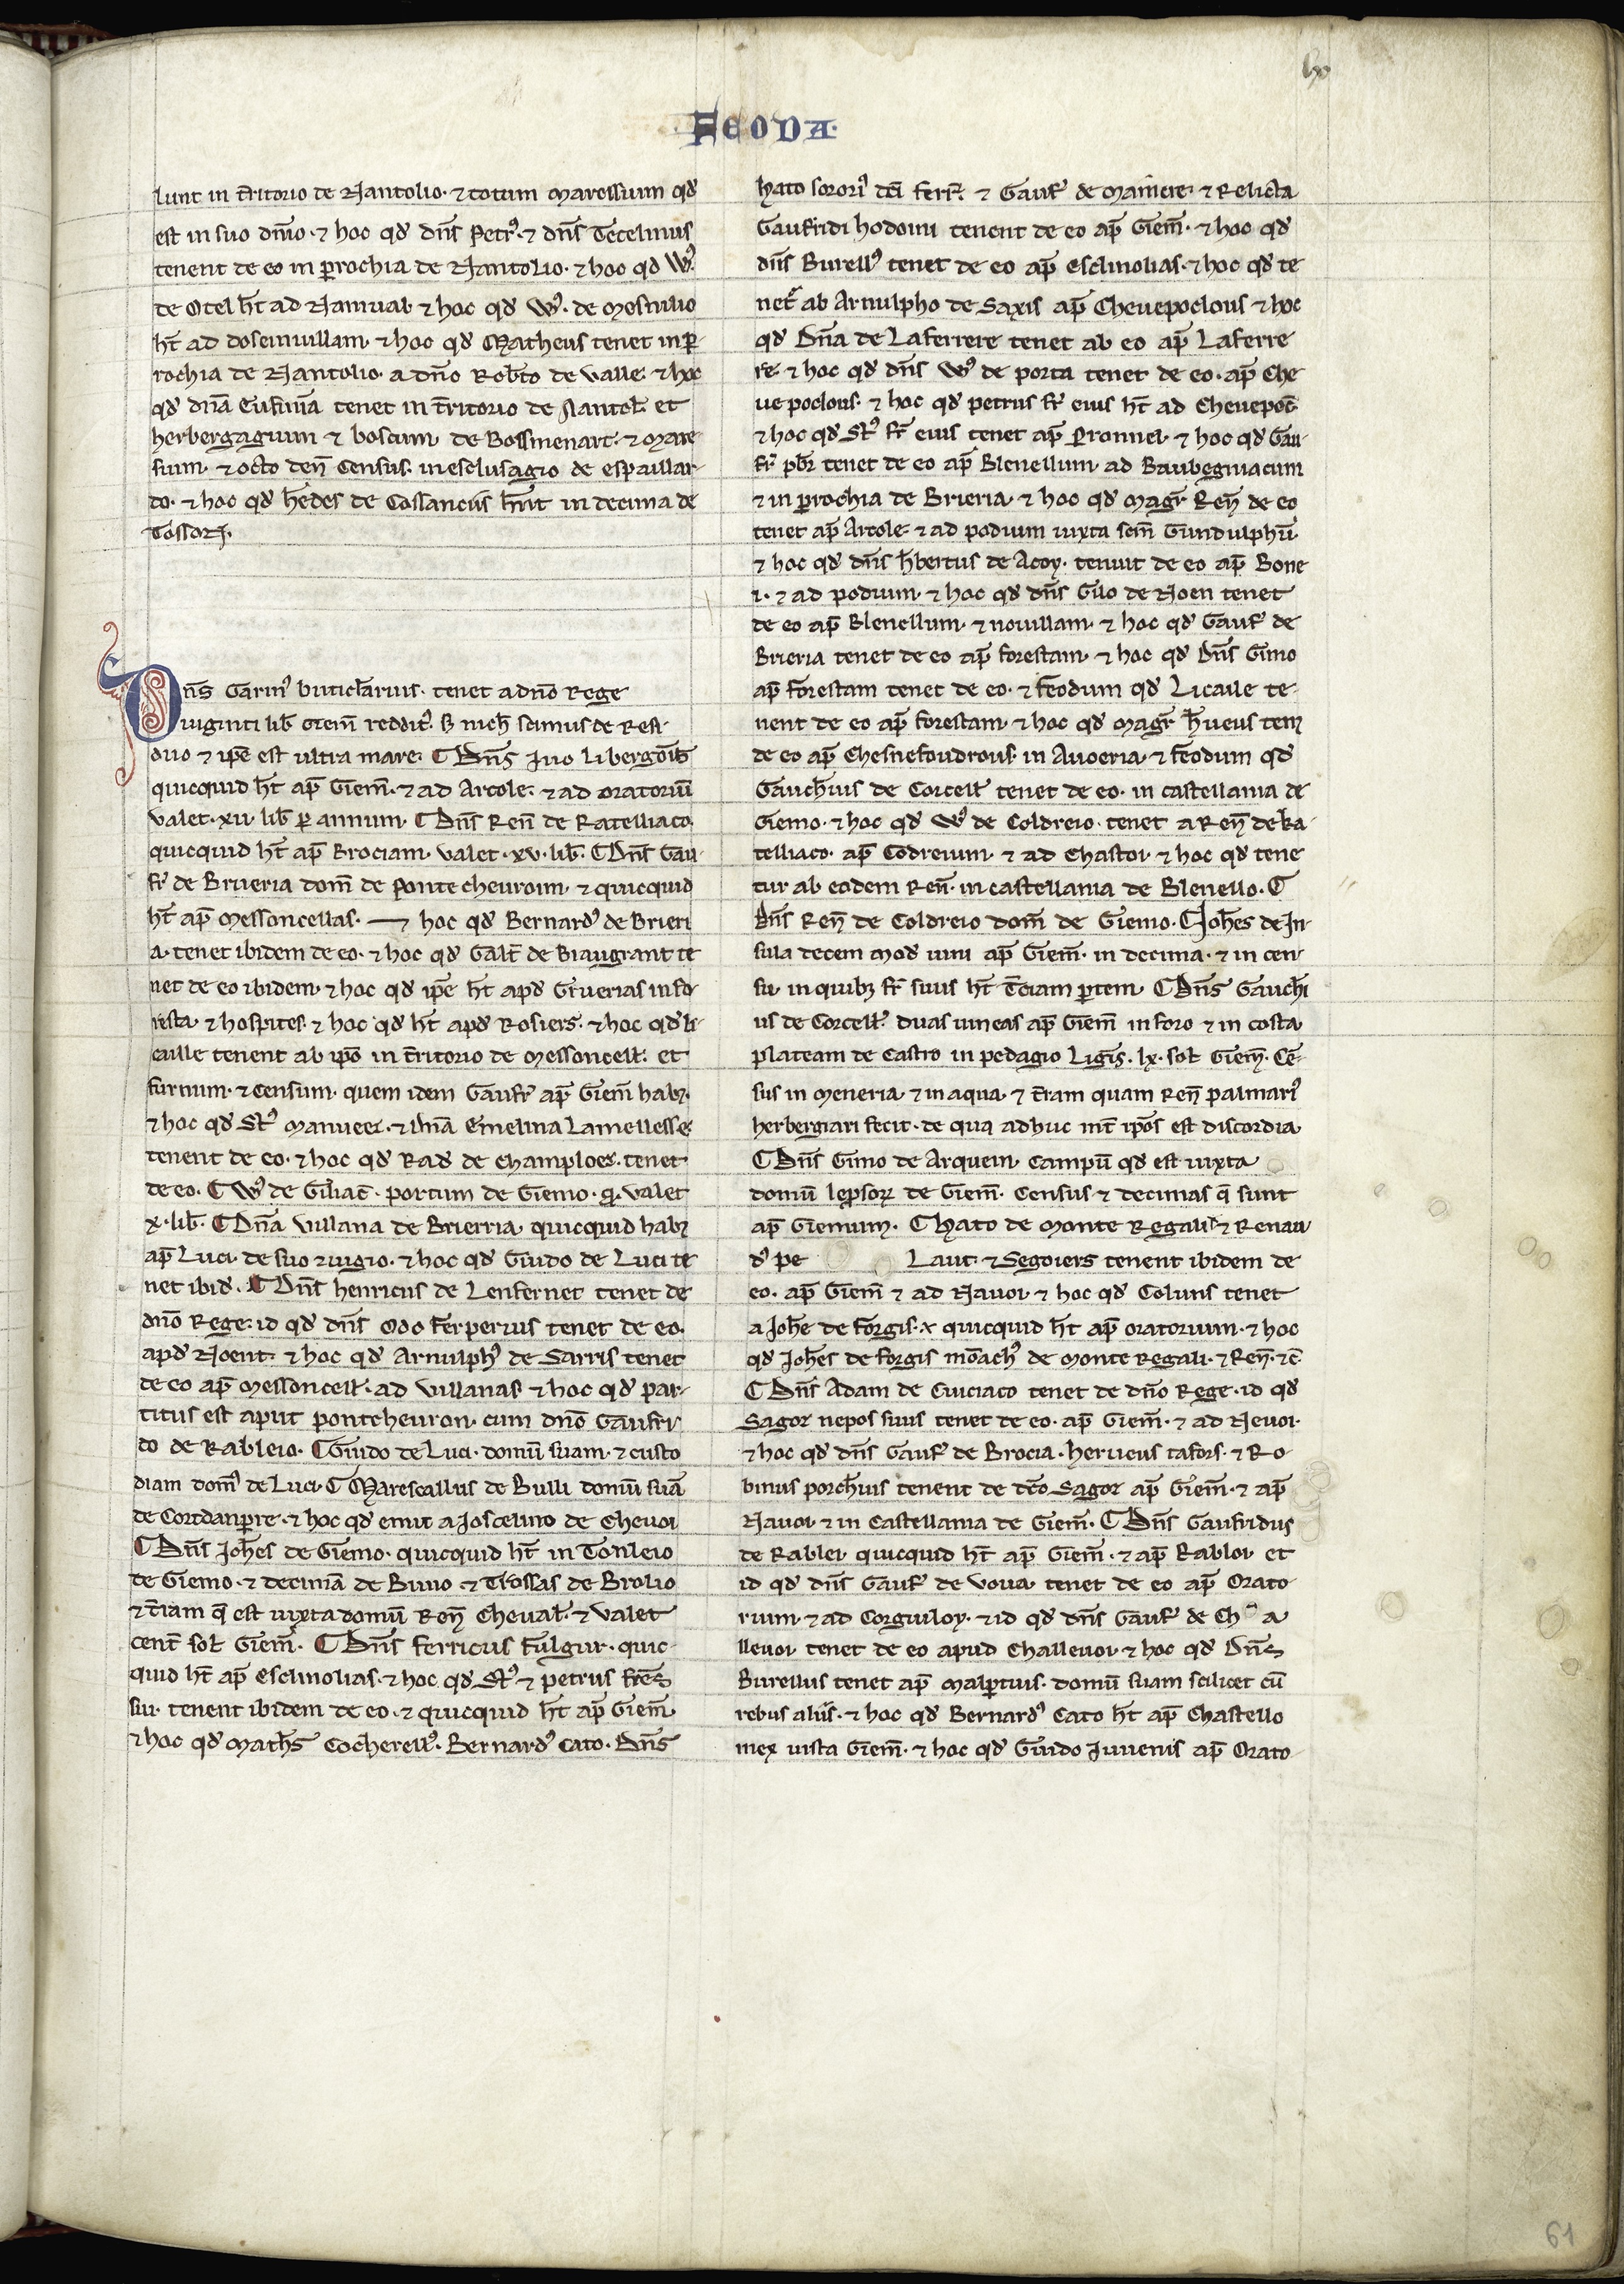 lx
FEODA.
lunt in t̄ritorio de Nantolio. ⁊ totum maressium qd̕
est in suo dn̄io. ⁊ hoc qd̕ dn̄s Petrꝰ. ⁊ dn̄s Tecelinus
tenent de eo in ꝑrochia de Nantolio. ⁊ hoc qd̕ Wꝰ.
de Otel hт̄ ad Hanuab ⁊ hoc qd̕ Wꝰ. de Mesnilio
hт̄ ad doseinuillam ⁊ hoc qd̕ Matheus tenet in ꝑ
rochia de Nantolio. a dn̄o Rob̄to de Valle. ⁊ hoc
qd̕ dn̄a Eufimia tenet in t̄ritorio de Nantol̄. et
herbergagium ⁊ boscum de Bossmenart. ⁊ Mare
sium. ⁊ octo den̄ census. in esclusagio de espaillar
do. ⁊ hoc qd̕ h̄edes de Cossancus hn̄t in decima de
Tossori.
Dn̄s Garinꝰ buticl̄arius. tenet a dn̄o Rege
uiginti lib̄ Giem̄ redditꝰ. s̄ nich̄ scimus de resi
duo ⁊ ip̄e est ultra mare. ¶ Dn̄s Iuo li bergōib̄
quicquid hт̄ ap̄ Giem̄. ⁊ ad Arcole. ⁊ ad oratoriū
valet. xii. lib̄ ꝑ annum. ¶ Dn̄s Ren̄ de Ratelliaco
quicquid hт̄ ap̄ Brociam. valet. xv. lib̄. ¶ Dn̄s Gau
fr̄ de Brueria dom̄ de Ponte cheuroim. ⁊ quicquid
hт̄ ap̄ Messoncellas. — hoc qd̕ Bernardꝰ de Brieri
a. tenet ibidem de eo. ⁊ hoc qd̕ Galт̄ de Biaugrant te
net de eo ibidem. ⁊ hoc qd̕ ip̄e hт̄ apd̕ Gr̄uerias in fo
resta. ⁊ hospites. ⁊ hoc qd̕ hт̄ apd̕ Rosiers. ⁊ hoc qd̕ li
caille tenent ab ip̄o in t̄ritorio de Messoncell̄. et
furnum. ⁊ censum. quem idem Gaufr̄ ap̄ Giem̄ habꝫ.
⁊ hoc qd̕ Stꝰ Manueer. ⁊ dn̄a Emelina Lamellesse
tenent de eo. ⁊ hoc qd̕ Rad̕ de Champloes. tenet
de eo. ¶ Wꝰ de Giliac̄. portum de Giemo. q. valet
x. lib̄. ¶ Dn̄a Villana de Brierria. quicquid habꝫ
ap̄ Luci. de suo ⁊ iugio. ⁊ hoc qd̕ Guido de Luci te
net ibid̕. ¶ Dn̄s henricus de Lenfernet tenet de
dn̄o Rege. id qd̕ dn̄s Odo Ferperius tenet de eo.
apd̕ Noent. ⁊ hoc qd̕ Arnulphꝰ de Sarris tenet
de eo ap̄ Messoncell̄. ad Villanas ⁊ hoc qd̕ par
titus est aput pontcheuron. cum dn̄o Gaufri
do de Rableio. ¶ Guido de Luci. domū suam. ⁊ custo
diam domꝰ de Luci. ¶ Marescallus de Bulli domū suā
de Cortdanꝑre. ⁊ hoc qd̕ emit a Joscelino de Cheuoi
¶ Dn̄s Joh̄es de Giemo. quicquid hт̄ in Tonleio
de Giemo. ⁊ decimā de Biuio ⁊ Trossas de Brolio
⁊ t̄ram q̄ est iuxta domū Ren̄ Cheual̄. ⁊ valet
cent̄ sol̄ Giem̄. ¶ Dn̄s Ferricus Fulgur. quic
quid hт̄ ap̄ Esclinolias. ⁊ hoc qd̕ Stꝰ ⁊ petrus fr̄es
sui. tenent ibidem de eo. ⁊ quicquid hт̄ ap̄ Giem̄
⁊ hoc qd̕ Math̄s Cocherellꝰ. Bernardꝰ Cato. Dn̄s
hato sororiꝰ dc̄i Ferr̄. ⁊ Gaufr̄ de Mainiere. ⁊ Relicta
Gaufridi hodouni tenent de eo ap̄ Giem̄. ⁊ hoc qd̕
dn̄s Burellꝰ tenet de eo ap̄ esclinolias. ⁊ hoc qd̕ te
net̄ ab Arnulpho de Saxis ap̄ Cheuepoclous ⁊ hoc
qd̕ Dn̄a de Laferrere tenet ab eo ap̄ Laferre
re. ⁊ hoc qd̕ dn̄s Wꝰ de porta tenet de eo. ap̄ Che
ue poclous. ⁊ hoc qd̕ petrus fr̄ eius hт̄ ad Cheuepoc̄
⁊ hoc qd̕ Stꝰ fr̄ eius tenet ap̄ Pronnei. ⁊ hoc qd̕ Gau
fr̄ pb̄r tenet de eo ap̄ Blenellum. ad Baubegniacum
⁊ in ꝑrochia de Brieria. ⁊ hoc qd̕ magr̄ Ren̄ de eo
tenet ap̄ Arcole. ⁊ ad podium iuxta sc̄m Gundulphū
⁊ hoc qd̕ dn̄s h̄bertus de Acoy. tenuit de eo ap̄ Bone
i. ⁊ ad podium. ⁊ hoc qd̕ dn̄s Gilo de Noen tenet
de eo ap̄ Blenellum. ⁊ nouillam. ⁊ hoc qd̕ Gaufr̄ de
Brieria tenet de eo ap̄ forestam. ⁊ hoc qd̕ Dn̄s Gimo
ap̄ forestam tenet de eo. ⁊ feodum qd̕ Licaille te
nent de eo ap̄ forestam. ⁊ hoc qd̕ magr̄ h̄ueus tenꝫ
de eo ap̄ Chesnefoudrous. in Auoeria. ⁊ feodum qd̕
Gauch̄ius de Corcell̄ tenet de eo. in castellania de
Giemo. ⁊ hoc qd̕ Wꝰ de Coldreio. tenet a Ren̄ de Ra
telliaco. ap̄ Codreium. ⁊ ad Chastoi. ⁊ hoc qd̕ tene
tur ab eodem Ren̄. in castellania de Blenello. ¶
Dn̄s Ren̄ de Coldreio dom̄ de Giemo. ¶ Joh̄es de In
sula decem mod̕ uini ap̄ Giem̄. in decima. ⁊ in cen
su. in quibꝫ fr̄ suus hт̄ t̄ciam ꝑtem. ¶ Dn̄s Gauch̄i
us de Corcell̄. duas uineas ap̄ Giem̄ in foro ⁊ in costa
plateam de Castro in pedagio Ligis. lx. sol̄ Giem̄. Cē
sus in meneria. ⁊ in aqua. ⁊ t̄ram quam Ren̄ palmariꝰ
herbergiari fecit. de qua adhuc int̄ ip̄os est discordia
¶ Dn̄s Gimo de Arquein. campū qd̕ est iuxta
domū lep̄soꝝ de Giem̄. Census ⁊ decimas q̄ sunt
ap̄ Giemum. ¶ hato de monte Regali. ⁊ Renau
d̕ pe Laut. ⁊ Segoiers tenent ibidem de
eo. ap̄ Giem̄ ⁊ ad Nauoi. ⁊ hoc qd̕ Coluns tenet
a Joh̄e de Forgis. ⁊ quicquid hт̄ ap̄ oratorium. ⁊ hoc
qd̕ Joh̄es de forgis mōachꝰ de monte regali. ⁊ Ren̄. ⁊c̄
¶ Dn̄s Adam de Cuiciaco tenet de dn̄o Rege. id qd̕
Sagor nepos suus tenet de eo. ap̄ Giem̄. ⁊ ad Neuoi.
⁊ hoc qd̕ dn̄s Gaufr̄ de Brocia. herueus cafors. ⁊ Ro
binus porch̄ius tenent de dc̄o Sagor ap̄ Giem̄. ⁊ ap̄
Nauoi. ⁊ in Castellania de Giem̄. ¶ Dn̄s Gaufridus
de Rablei. quicquid hт̄ ap̄ Giem̄. ⁊ ap̄ Rabloi et
id qd̕ dn̄s Gaufr̄ de Voua. tenet de eo ap̄ Orato
rium. ⁊ ad Corguiloy. ⁊ id qd̕ dn̄s Gaufr̄ de Ch a
lleuoi tenet de eo apud Challeuoi. ⁊ hoc qd̕ Dn̄s
Burellus tenet ap̄ malꝑtuis. domū suam scilicet cū
rebus aliis. ⁊ hoc qd̕ Bernardꝰ Cato hт̄ ap̄ Chastello
mex iusta Giem̄. ⁊ hoc qd̕ Guido Iuuenis ap̄ Orato
61